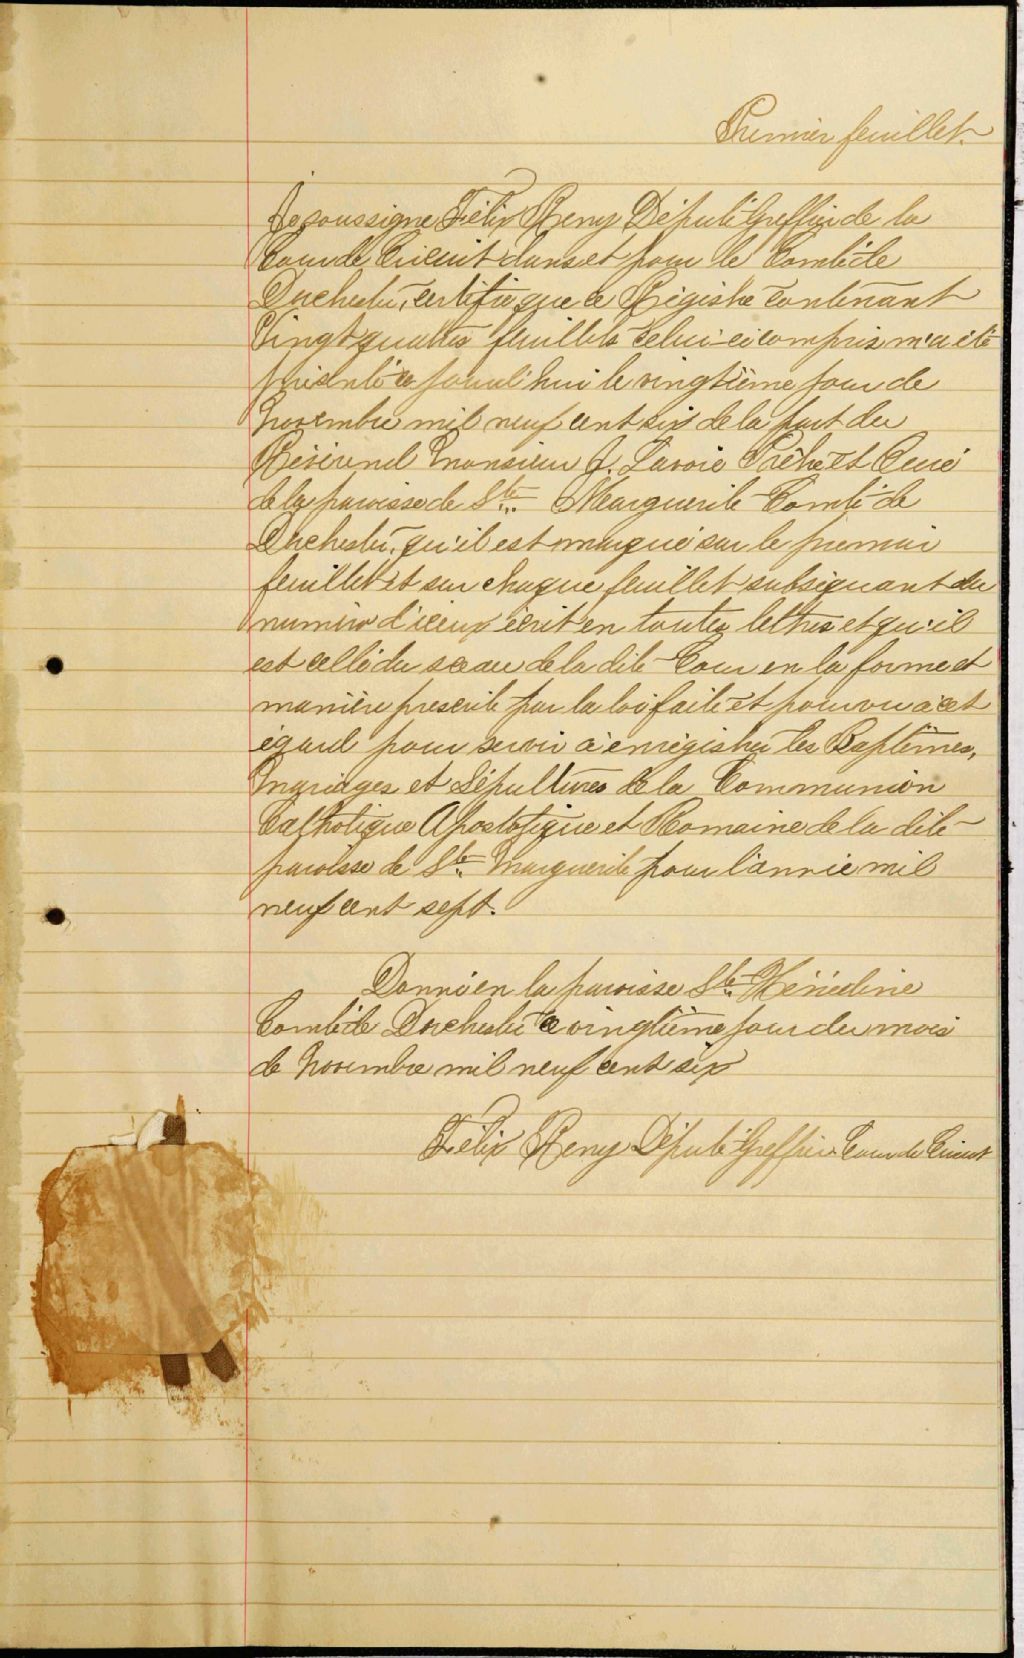 Premier feuillet.
Je soussigné Félix Remy Député Greffier de la
Cour de Circuit dans et pour le Comté de
Dorchester, certifie que ce Régistre contenant
Vingt quatres feuillets celui-ci compris m'a été
présenté ce jourd'hui le vingtième jour de
Novembre mil neuf cent six de la part du
Révérend Monsieur J. Lavoie Prêtre et Curé
de la paroisse de Ste Marguerite Comté de
Dorchester, qu'il est marqué sur le premier
feuillet et sur chaque feuillet subséquant du
numéro d'iceux écrit en toutes lettres et qu'il
est cellé du sceau de la dite Cour en la forme et
manière prescrite par la loi faite et pourvu à cet
égard pour servir à enrégistrer les Baptêmes,
Mariages et Sépultures de la Communion
Catholique Apostolique et Romaine de la dite
paroisse de Ste Marguerite pour l'année mil
neuf cent sept.
Donné en la paroisse Ste Hénédine
Comté de Dorchester ce vingtième jour du mois
de Novembre mil neuf cent six
Félix Remy Député Greffier Cour de Circuit